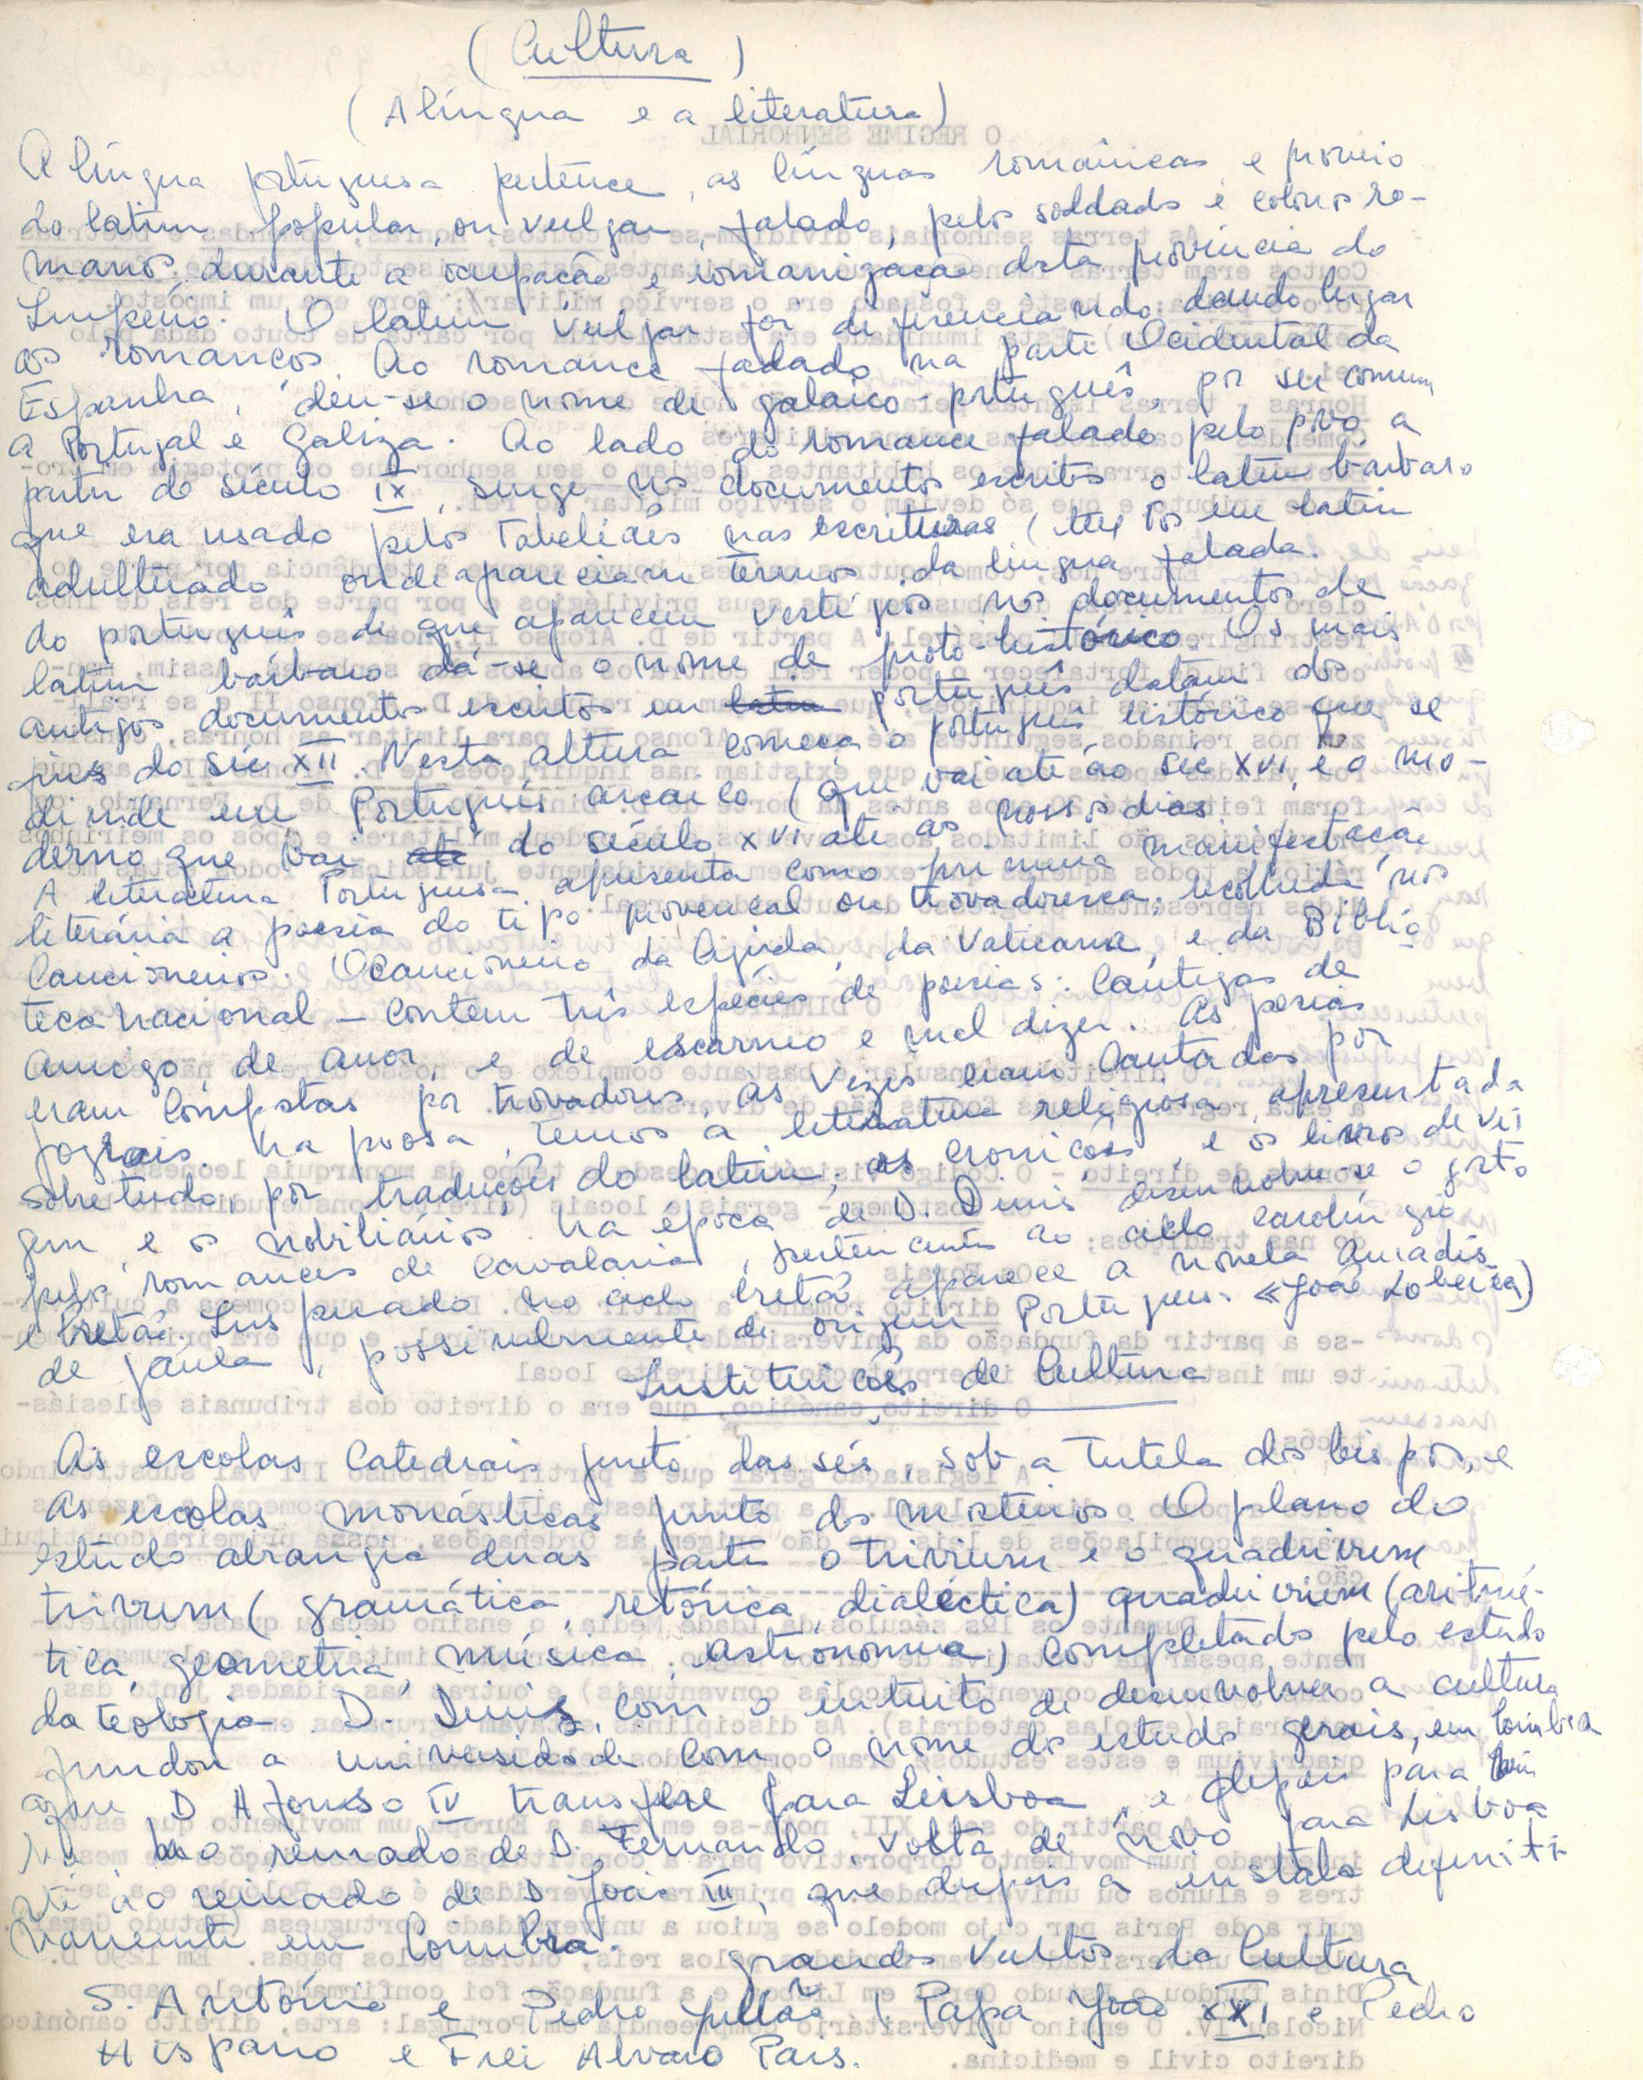 (Cultura)
(A língua e a literatura)
A língua portuguesa pertence, as línguas românicas e proveio
do latim popular, ou vulgar, falado, pelos soldados e colonos ro-
manos, durante a ocupação e romanização desta província do
Império. O latim vulgar foi diferenciando dando lugar
aos romanços. Ao romance falado na parte Ocidental da
Espanha, deu-se o nome de galaico-português, por ser comum
a Portugal e Galiza. Ao lado do romance falado pelo povo, a
partir do século IX, surge nos documentos escritos o latim bárbaro
que era usado pelos Tabeliães nas escrituras, (textos em latim
adulterado onde apareciam termos da língua falada.
do português de que aparecem vestígios nos documentos de
latim bárbaro dá-se o nome de proto-histórico. Os mais
antigos documentos escritos em latim português datam dos
fins do séc XII. Nesta altura começa o português histórico que se
divide em Português arcaico (que vai até ao séc XVI, e o mo-
derno que vai até do século XVI até aos nossos dias.
A literatura Portuguesa apresenta como primeira manifestação
literária a poesia do tipo provençal ou trovadoresca, recolhida nos
Cancioneiros. O cancioneiro da Ajuda, da Vaticana, e da Biblio
teca nacional – contem três espécies de poesias: Cantigas de
amigo, de amor, e de escarneo e mal dizer. As poesias
eram compostas por trovadores, às vezes eram cantadas por
jograis. Na prosa, temos a literatura religiosa, apresentada
sobretudo, por traduções do latim; as cronicões, e os livros de Vi
gem, e os nobiliários. Na época de D. Dinis desenvolve-se o gosto
pelos romances de cavalaria, pertencentes ao ciclo carolíngio
e bretão. Inspirado no ciclo bretão aparece a novela Amadis
de Gaula, possivelmente de origem Portuguesa «João Lobeira)
Instituições de Cultura
As escolas Catedrais junto das sés, sob a tutela dos bispos, e
as escolas monásticas junto dos mosteiros. O plano do
estudo abrangia duas partes o trivium e o quadrivium
trivium (gramática, retórica, dialéctica) quadrivium (aritmé-
tica, geometria, música, astronomia) completados pelo estudo
da teologia. D. Dinis, com o intuito de desenvolver a cultura
fundou a universidade com o nome do estudo gerais, em Coimbra
que D Afonso IV transfere para Lisboa, e depois para
no reinado de D. Fernando, volta de novo para Lisboa
Até ao reinado de D João III, que depois a instala definiti
vamente em Coimbra.
grandes Vultos da Cultura
S. António e Pedro Julião (Papa João XXI e Pedro
Hispano e Frei Alvaro Pais.